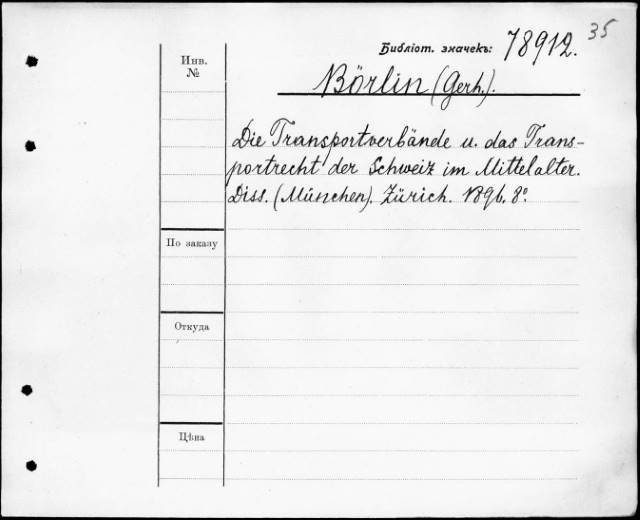 35
Библіот. значекъ: 78912.
Инв.
№
Börlin (Gerh.).
Die Transportverbände u. das Trans-
portrecht der Schweiz im Mittelalter.
Diss. (München). Zürich. 1896. 8°.
По заказу
Откуда
Цѣна